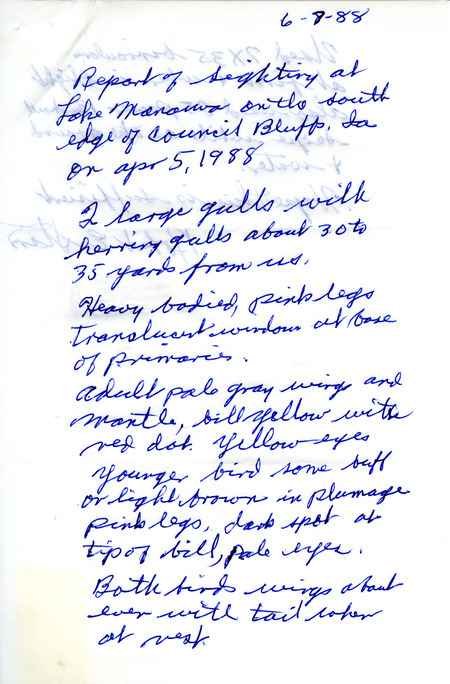 6-7-88
Report of sighting at
Lake Manawa on the south
edge of Council Bluffs, Ia
on apr 5, 1988
2 large gulls with
herring gulls about 30 to
35 yards from us.
Heavy bodied, pink legs
translucent windows at base
of primaries.
adult pale gray wings and
mantle, bill yellow with
red dot. Yellow eyes
younger bird some buff
or light brown in plumage
pink legs, dark spot at
tip of bill, pale eyes.
Both birds wings about
even with tail when
at rest.